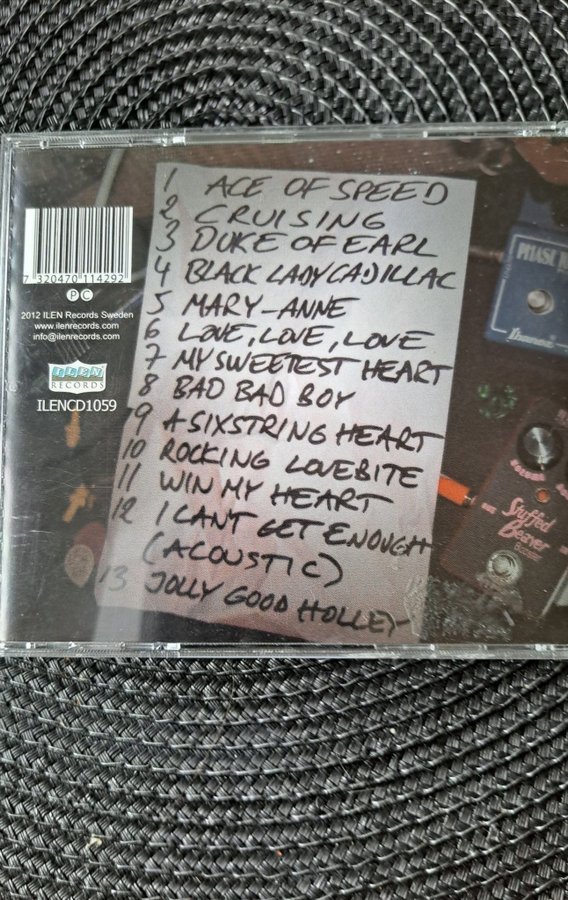 1 ACE OF SPEED
2 CRUISING
3 DUKE OF EARL
4 BLACK LADY CADILLAC
5 MARY-ANNE
6 LOVE, LOVE, LOVE
7 MY SWEETEST HEART
8 BAD BAD BOY
9 A SIXSTRING HEART
10 ROCKING LOVEBITE
11 WIN MY HEART
12 I CANT GET ENOUGH
(ACOUSTIC)
13 JOLLY GOOD HOLLEY
7 320470 114292
P C
2012 ILEN Records Sweden
www.ilenrecords.com
info@ilenrecords.com
ILEN
RECORDS
ILENCD1059
PHASE
Stuffed
Beaver